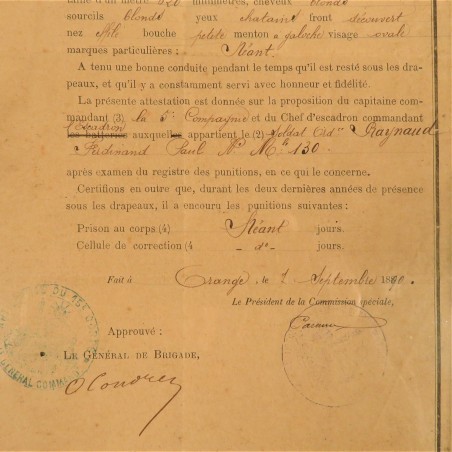 taille d'un mètre 620 millimètres, cheveux blonds
sourcils blonds yeux chatains front découvert
nez effilé bouche petite menton à galoche visage ovale
marques particulières : Néant
A tenu une bonne conduite pendant le temps qu'il est resté sous les dra-
peaux, et qu'il y a constamment servi avec honneur et fidélité.
La présente attestation est donnée sur la proposition du capitaine com-
mandant (3) la 5e Compagnie et du Chef d'escadron commandant
l'Escadron
les batteries auxquelles appartient le (2) Soldat Ord.re Raynaud
Ferdinand Paul No Mle 130
après examen du registre des punitions, en ce qui le concerne.
Certifions en outre que, durant les deux dernières années de présence
sous les drapeaux, il a encouru les punitions suivantes :
Prison au corps (4 Néant jours.
Cellule de correction (4 - do - jours.
Fait à Orange, le 1 Septembre 1890.
Le Président de la Commission spéciale,
Approuvé :
LE GÉNÉRAL DE BRIGADE,
GÉNÉRAL COMM